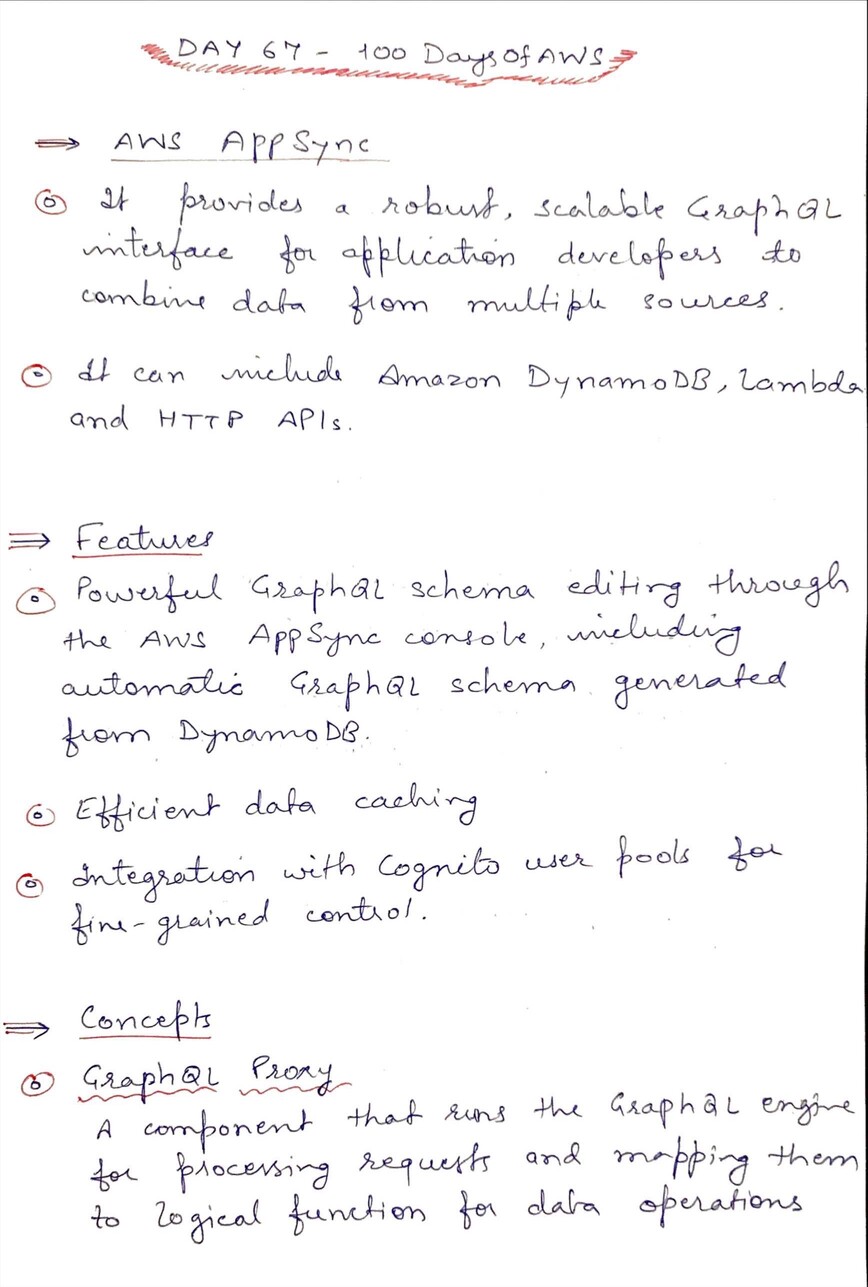 DAY 67 - 100 Days Of AWS
⇒ AWS AppSync
⊙ It provides a robust, scalable GraphQL
interface for application developers to
combine data from multiple sources.
⊙ It can include Amazon DynamoDB, Lambda
and HTTP APIs.
⇒ Features
⊙ Powerful GraphQL schema editing through
the AWS AppSync console, including
automatic GraphQL schema generated
from DynamoDB.
⊙ Efficient data caching
⊙ Integration with Cognito user pools for
fine-grained control.
⇒ Concepts
⊙ GraphQL Proxy
A component that runs the GraphQL engine
for processing requests and mapping them
to logical function for data operations